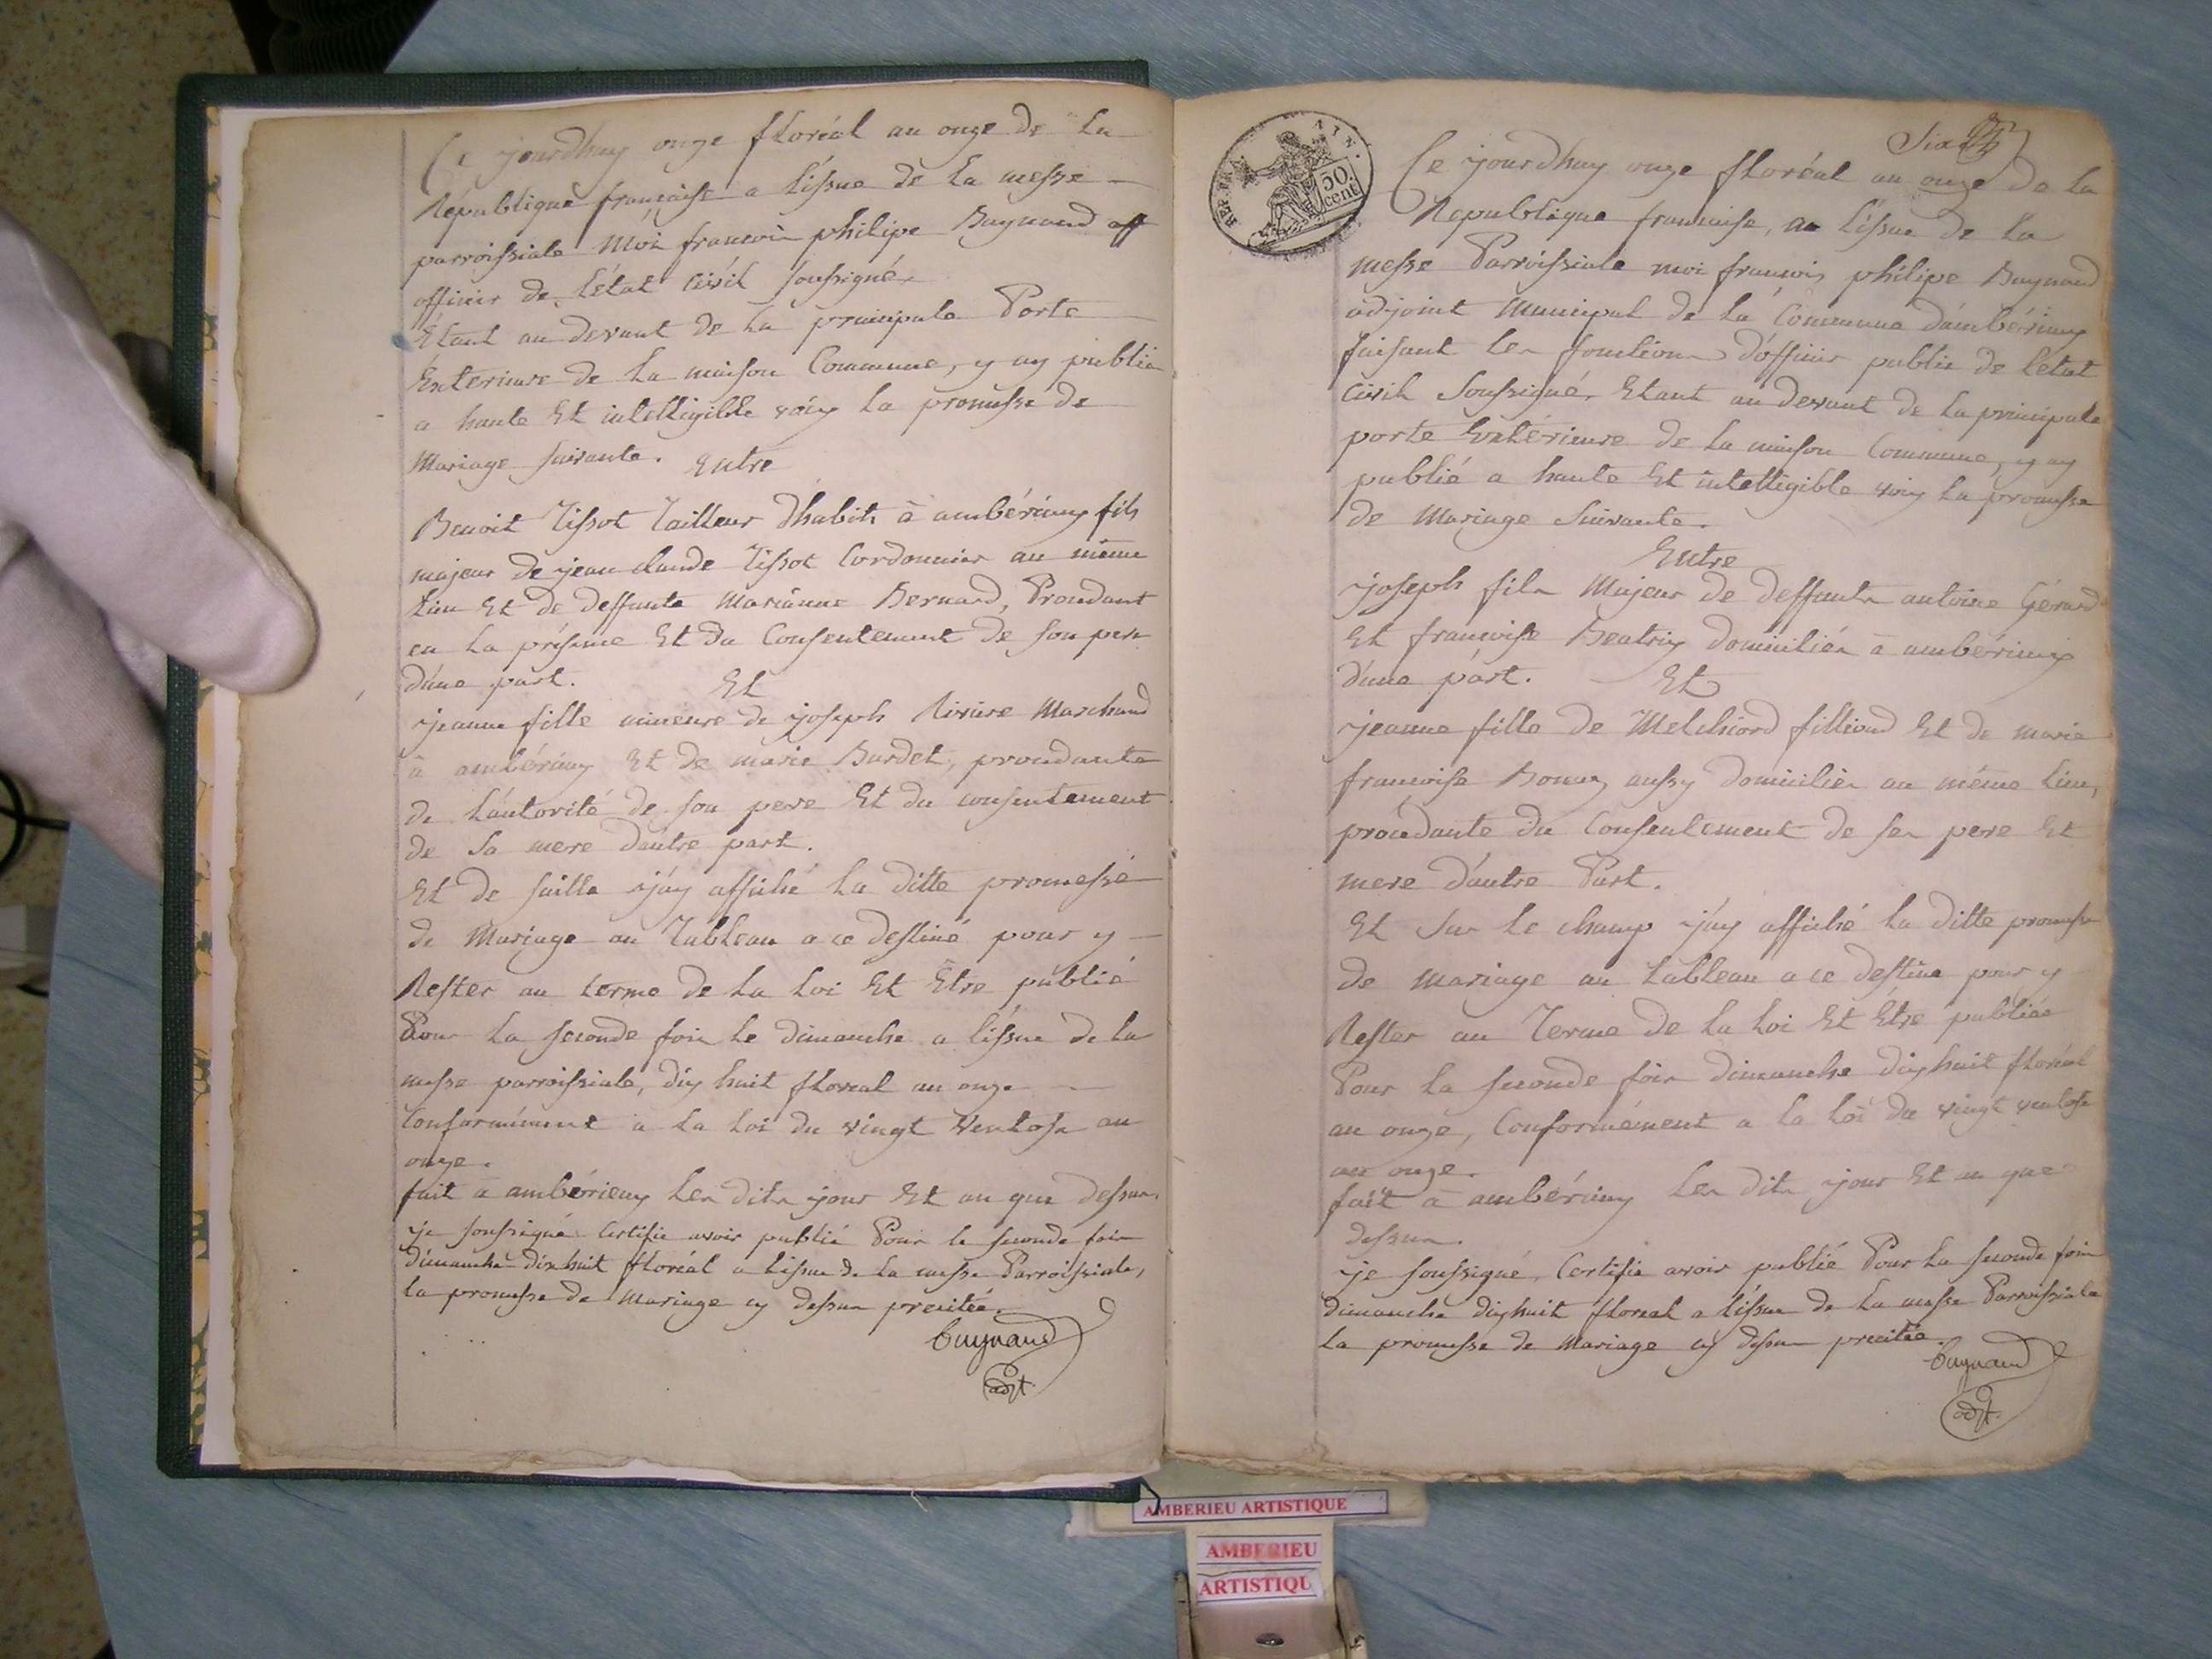 Ce jourdhuy onze floréal an onze de La
République française a Lissue de La messe
parroissiale Moi francois philipe Buynand off
officier de L'état Civil soussigné
Étant au devant de La principale Porte
Exterieure de La maison Commune, y ay publié
a haute Et intelligible voix La promesse de
Mariage suivante. Entre
Benoit Tissot Tailleur d'habits à ambérieux fils
majeur de jean claude Tissot Cordonnier au même
Lieu Et de deffunte Marianne Bernard, Procédant
en La présence Et du Consentement de son pere
d'une part. Et
jeanne fille mineure de joseph Riviere Marchand
à ambérieux Et de marie Bardet, procedante
de L'autorité de son pere Et du consentement
de sa mere d'autre part.
Et de suitte j'ay affiché La ditte promesse
de Mariage au Tableau a ce destiné pour y
Rester au terme de La Loi Et Être publié
Pour La seconde fois Le dimanche a L'issue de La
messe parroissiale, dix huit floreal an onze
Conformément a La Loi du vingt Ventose an
onze.
fait a ambérieux Les dits jour Et an que dessus.
je soussigné Certifie avoir publié Pour la seconde fois
dimanche dix huit floréal a Lissue de La messe Parroissiale,
la promesse de Mariage cy dessus precitée.
Buynand
adjt
Six
REP. FRA. AIN.
50.
cent
Ce jourdhuy onze floréal an onze de La
République francaise, a L'issue de La
messe Parroissiale moi francois philipe Buynand
adjoint Municipal de La Commune d'ambérieux
faisant Les fonctions d'officier public de L'état
Civil Soussigné, Etant au devant de La principale
porte Extérieure de La maison Commune, y ay
publié a haute Et intelligible voix La promesse
de Mariage Suivante.
Entre
joseph fils Majeur de deffunts antoine Gérard
Et francoise Beatrix domiciliés à ambérieux
d'une part. Et
jeanne fille de Melchiord filliond Et de marie
francoise Bonaz aussy domiciliés au même Lieu,
procédante du Consentement de ses pere Et
mere d'autre Part.
Et Sur Le champ j'ay affiché La ditte promesse
de mariage au tableau a ce destiné pour y
Rester au Terme de La Loi Et Être publiée
Pour La seconde fois dimanche dix huit floréal
an onze, Conformément a La Loi du vingt ventose
an onze.
fait à ambérieux Les dits jour Et an que
dessus.
je soussigné, Certifie avoir publié Pour La seconde fois
dimanche dix huit floreal a L'issue de La messe Parroissiale
La promesse de Mariage cy dessus precitée.
Buynand
adjt.
AMBERIEU ARTISTIQUE
AMBERIEU
ARTISTIQU